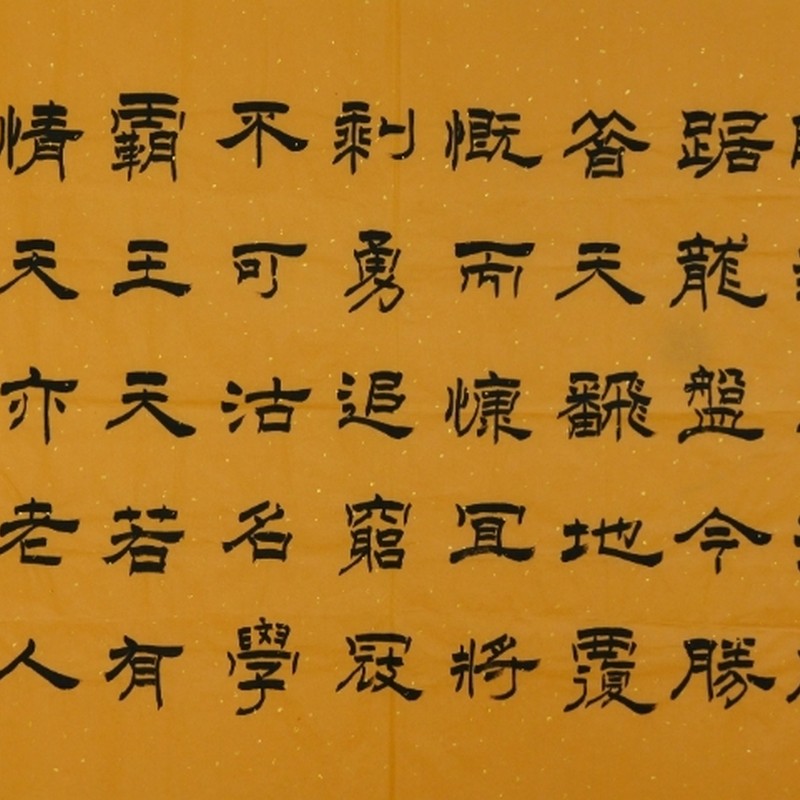 踞龍盤今勝
昔天飜地覆
慨而慷冝將
剩勇追窮寇
不可沽名學
霸王天若有
情天亦老人